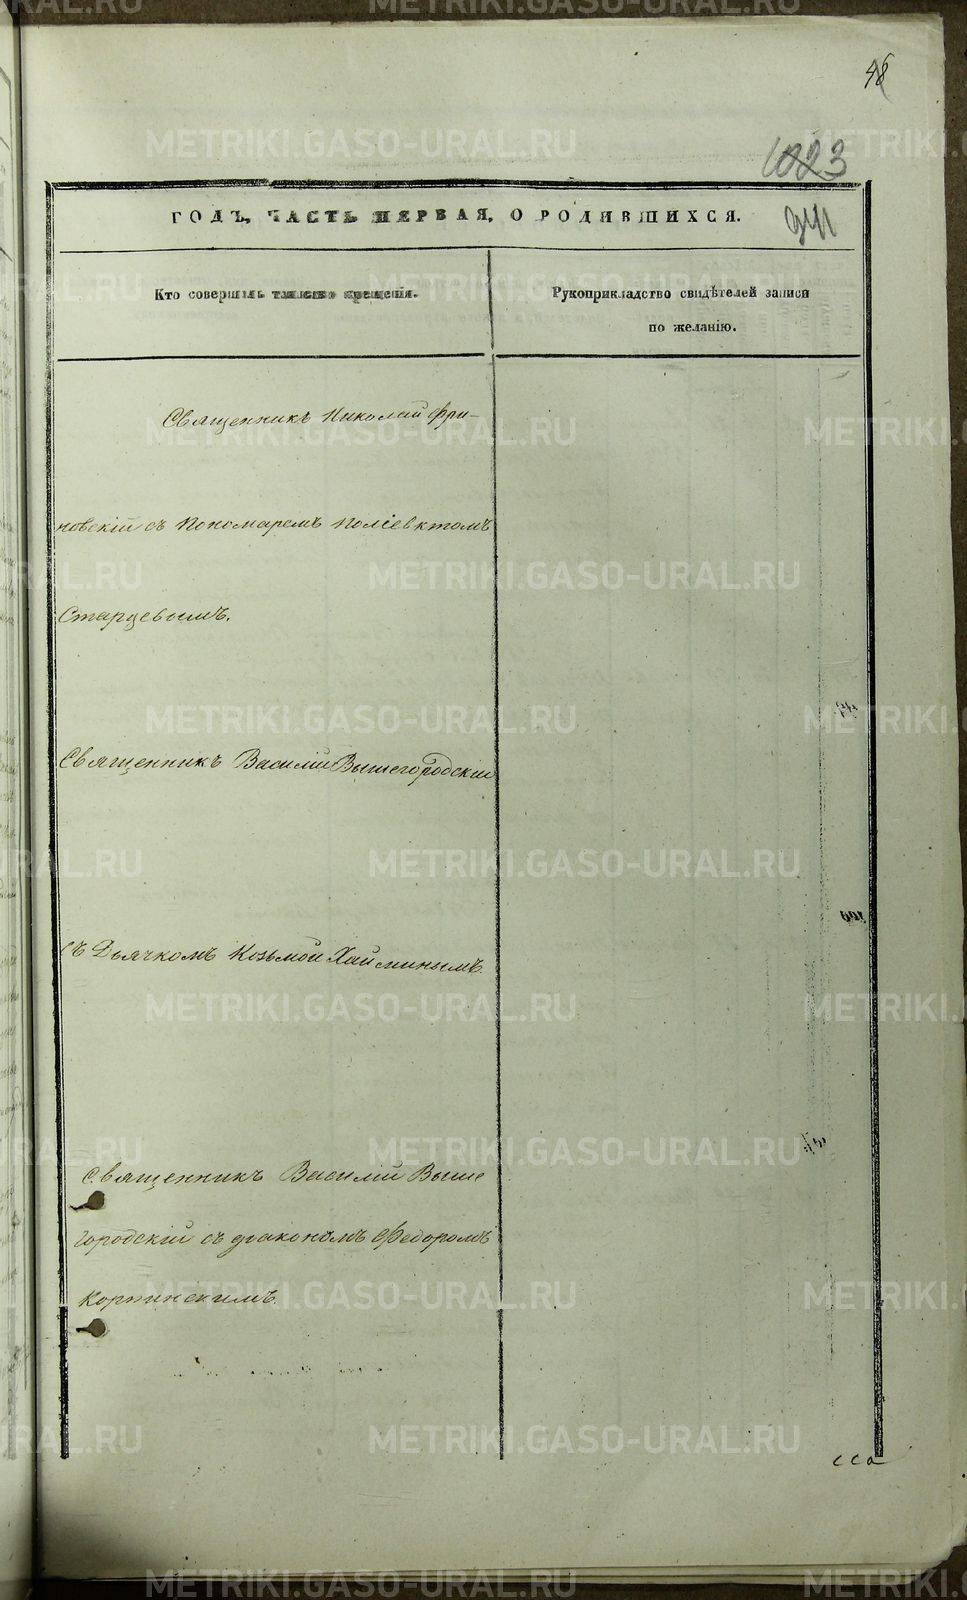 1023
ГОДЪ, ЧАСТЬ ПЕРВАЯ, О РОДИВШИХСЯ.
Кто совершилъ таинство крещенія.
Рукоприкладство свидѣтелей записи
по желанію.
Священникъ Николай Фри-
новскій съ Пономаремъ Поліевктомъ
Старцевымъ.
Священникъ Василій Вышегородскій
съ Дьячкомъ Козьмой Хайминымъ.
Священникъ Василій Выше
городскій съ діакономъ Федоромъ
Корпинскимъ.
METRIKI.GASO-URAL.RU